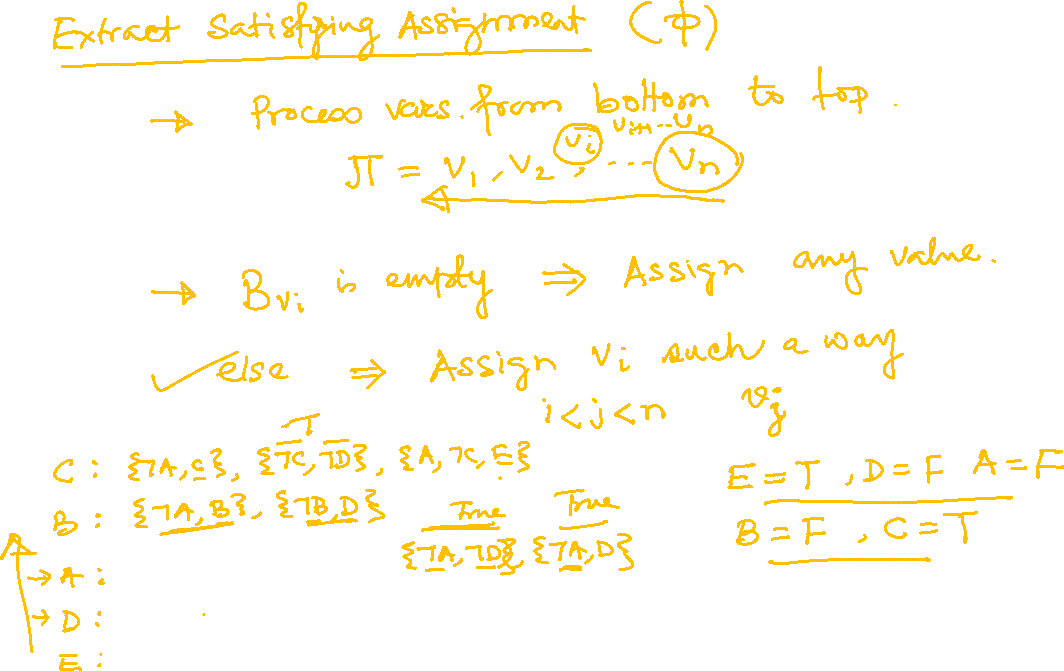 Extract Satisfying Assignment (Φ)
→ Process vars. from bottom to top.
π = V₁, V₂, Vᵢ, .... Vₙ
→ B_{Vᵢ} is empty ⇒ Assign any value.
✓ else ⇒ Assign Vᵢ such a way
i<j<n vⱼ
T
C: {¬A, C}, {¬C, ¬D}, {A, ¬C, E}
E = T, D = F A = F
B: {¬A, B}, {¬B, D}
True True
B = F, C = T
{¬A, ¬D}, {¬A, D}
→ A:
→ D:
E: